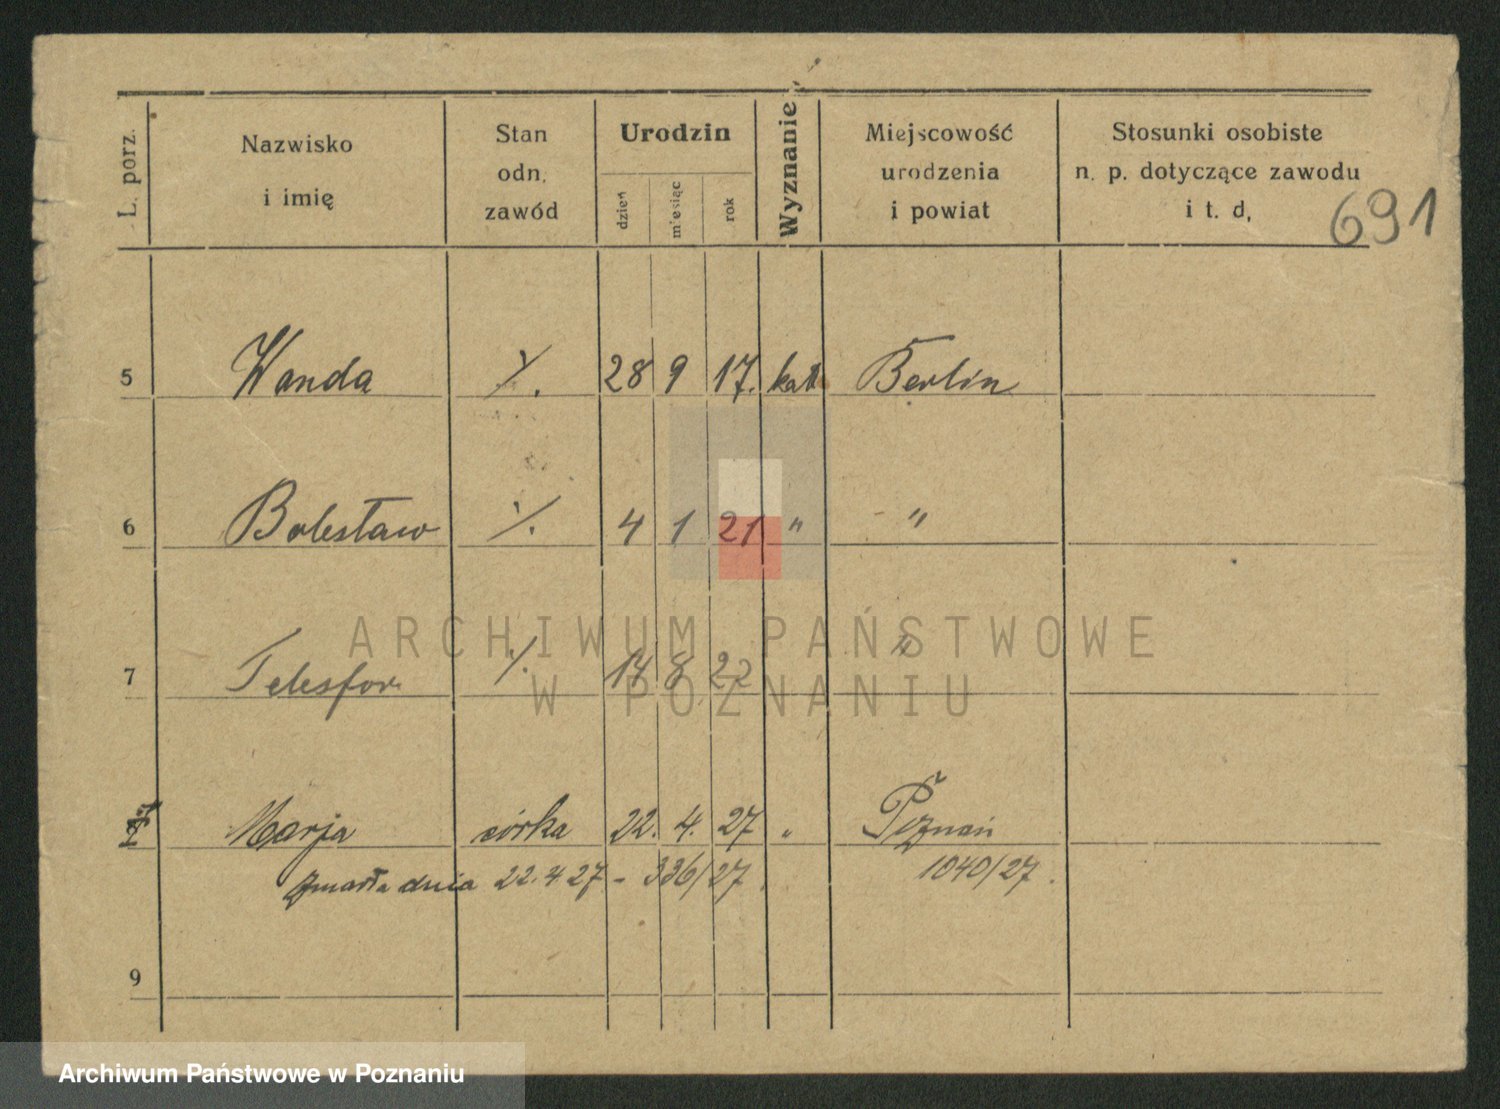 L. porz.
Nazwisko
i imię
Stan
odn.
zawód
Urodzin
dzień
miesiąc
rok
Wyznanie
Miejscowość
urodzenia
i powiat
Stosunki osobiste
n. p. dotyczące zawodu
i t. d,
691
5 Wanda %. 28 9 17. kat Berlin
6 Bolesław %. 4 1 21 " "
7 Telesfor %. 8 22 "
Marja córka 22. 4. 27 " Poznań
zmarła dnia 22. 4 27 - 336/27. 1040/27.
9
ARCHIWUM PAŃSTWOWE
W POZNANIU
Archiwum Państwowe w Poznaniu